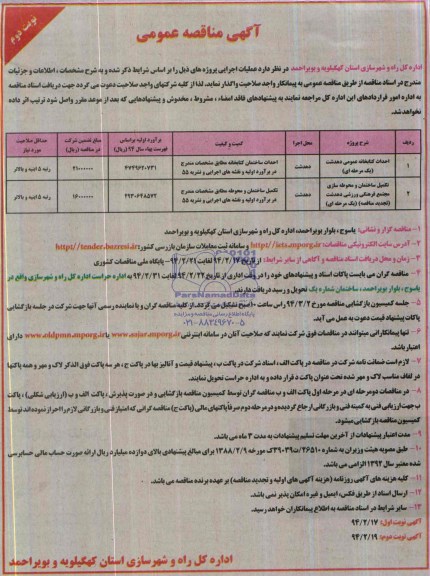 آگهی مناقصه عمومی
نوبت دوم
اداره کل راه و شهرسازی استان کهگیلویه و بویراحمد در نظر دارد عملیات اجرایی پروژه های ذیل را بر اساس شرایط ذکر شده و به شرح مشخصات ، اطلاعات و جزئیات
مندرج در اسناد مناقصه از طریق مناقصه عمومی به پیمانکار واجد صلاحیت واگذار نماید. لذا از کلیه شرکتهای واجد صلاحیت دعوت می گردد جهت دریافت اسناد مناقصه
به اداره امور قراردادهای این اداره کل مراجعه نمایند به پیشنهادهای فاقد امضاء ، مشروط ، مخدوش و پیشنهادهایی که بعد از موعد مقرر واصل شود ترتیب اثر داده
نخواهد شد.
ردیف شرح پروژه محل اجرا کمیت و کیفیت برآورد اولیه براساس فهرست بهاء سال ۹۴ (ریال) مبلغ تضمین شرکت در مناقصه (ریال) حداقل صلاحیت مورد نیاز
۱ احداث کتابخانه عمومی دهدشت (یک مرحله ای) دهدشت احداث ساختمان کتابخانه مطابق مشخصات مندرج در برآورد اولیه و نقشه های اجرایی و نشریه ۵۵ رتبه ۵ ابنیه و بالاتر
۲ تکمیل ساختمان و محوطه سازی مجتمع فرهنگی ورزشی دهدشت (تجدید مناقصه) (یک مرحله ای) دهدشت تکمیل ساختمان و محوطه مطابق مشخصات مندرج در برآورد اولیه و نقشه های اجرایی و نشریه ۵۵ رتبه ۵ ابنیه و بالاتر
۱- مناقصه گزار و نشانی: یاسوج، بلوار بویراحمد، اداره کل راه و شهرسازی استان کهگیلویه و بویراحمد
۲- آدرس سایت الکترونیکی مناقصات: http://iets.mporg.ir و سامانه ثبت معاملات سازمان بازرسی کشور: http://tender.bazresi.ir
۳- زمان و محل دریافت اسناد مناقصه و آگاهی از سایر شرایط: از تاریخ ۹۴/۲/۱۷ لغایت ۹۴/۲/۲۱ – پایگاه ملی مناقصات کشوری
۴- مناقصه گران می بایست پاکات اسناد و پیشنهادهای خود را در وقت اداری از تاریخ ۹۴/۲/۲۲ لغایت ۹۴/۲/۳۱ به اداره حراست اداره کل راه و شهرسازی واقع در
یاسوج، بلوار بویراحمد، ساختمان شماره یک تحویل و رسید دریافت دارند.
۵- جلسه کمیسیون بازگشایی مناقصه مورخ ۹۴/۳/۲ راس ساعت ۱۰ صبح تشکیل می گردد. از کلیه مناقصه گران و یا نماینده رسمی آنها جهت شرکت در جلسه بازگشایی
پاکات پیشنهاد قیمت دعوت به عمل می آید.
۶- تنها پیمانکارانی میتوانند در مناقصات فوق شرکت نمایند که صلاحیت آنان در سامانه اینترنتی www.sajar.mporg.ir یا www.eldpmn.mporg.ir دارای
اعتبار باشد.
۷- لازم است ضمانت نامه شرکت در مناقصه در پاکت الف ، اسناد شرکت در پاکت ب ، پیشنهاد قیمت و آنالیز بها در پاکت ج ، هر سه پاکت فوق الذکر لاک و مهر و همه پاکتها
در لفاف مناسب لاک و مهر شده تحت عنوان پاکت د قرار داده و به اداره حراست تحویل نمایند.
۸- در مناقصات دو مرحله ای در مرحله اول پاکت الف و ب مناقصه گران توسط کمیسیون مناقصه بازگشایی و در صورت پذیرش ، پاکت الف و ب (ارزیابی شکلی) ، پاکت
ب جهت ارزیابی فنی به کمیته فنی و بازرگانی ارجاع گردیده و در مرحله دوم صرفاً پاکتهای مالی (پاکت ج) مناقصه گرانی که امتیاز فنی و بازرگانی لازم را احراز نموده اند توسط
کمیسیون مناقصه بازگشایی میشود.
۹- مدت اعتبار پیشنهادات از آخرین مهلت تسلیم پیشنهادات به مدت ۳ ماه می باشد.
۱۰- طبق مصوبه هیئت وزیران به شماره ۴۶۵۱۰/ت۳۹۰۳۹ک مورخه ۱۳۸۸/۳/۹ برای مبالغ پیشنهادی بالای دوازده میلیارد ریال ارائه صورت حساب مالی حسابرسی
شده معتبر سال ۱۳۹۲ الزامی می باشد.
۱۱- کلیه هزینه های آگهی روزنامه (هزینه آگهی های اولیه و تجدید مناقصه) بر عهده برنده مناقصه می باشد.
۱۲- ارسال اسناد از طریق فکس، ایمیل و غیره امکان پذیر نمی باشد.
۱۳- سایر شرایط در اسناد مناقصه به اطلاع پیمانکاران خواهد رسید.
آگهی نوبت اول: ۹۴/۲/۱۷
آگهی نوبت دوم: ۹۴/۲/۱۹
اداره کل راه و شهرسازی استان کهگیلویه و بویراحمد